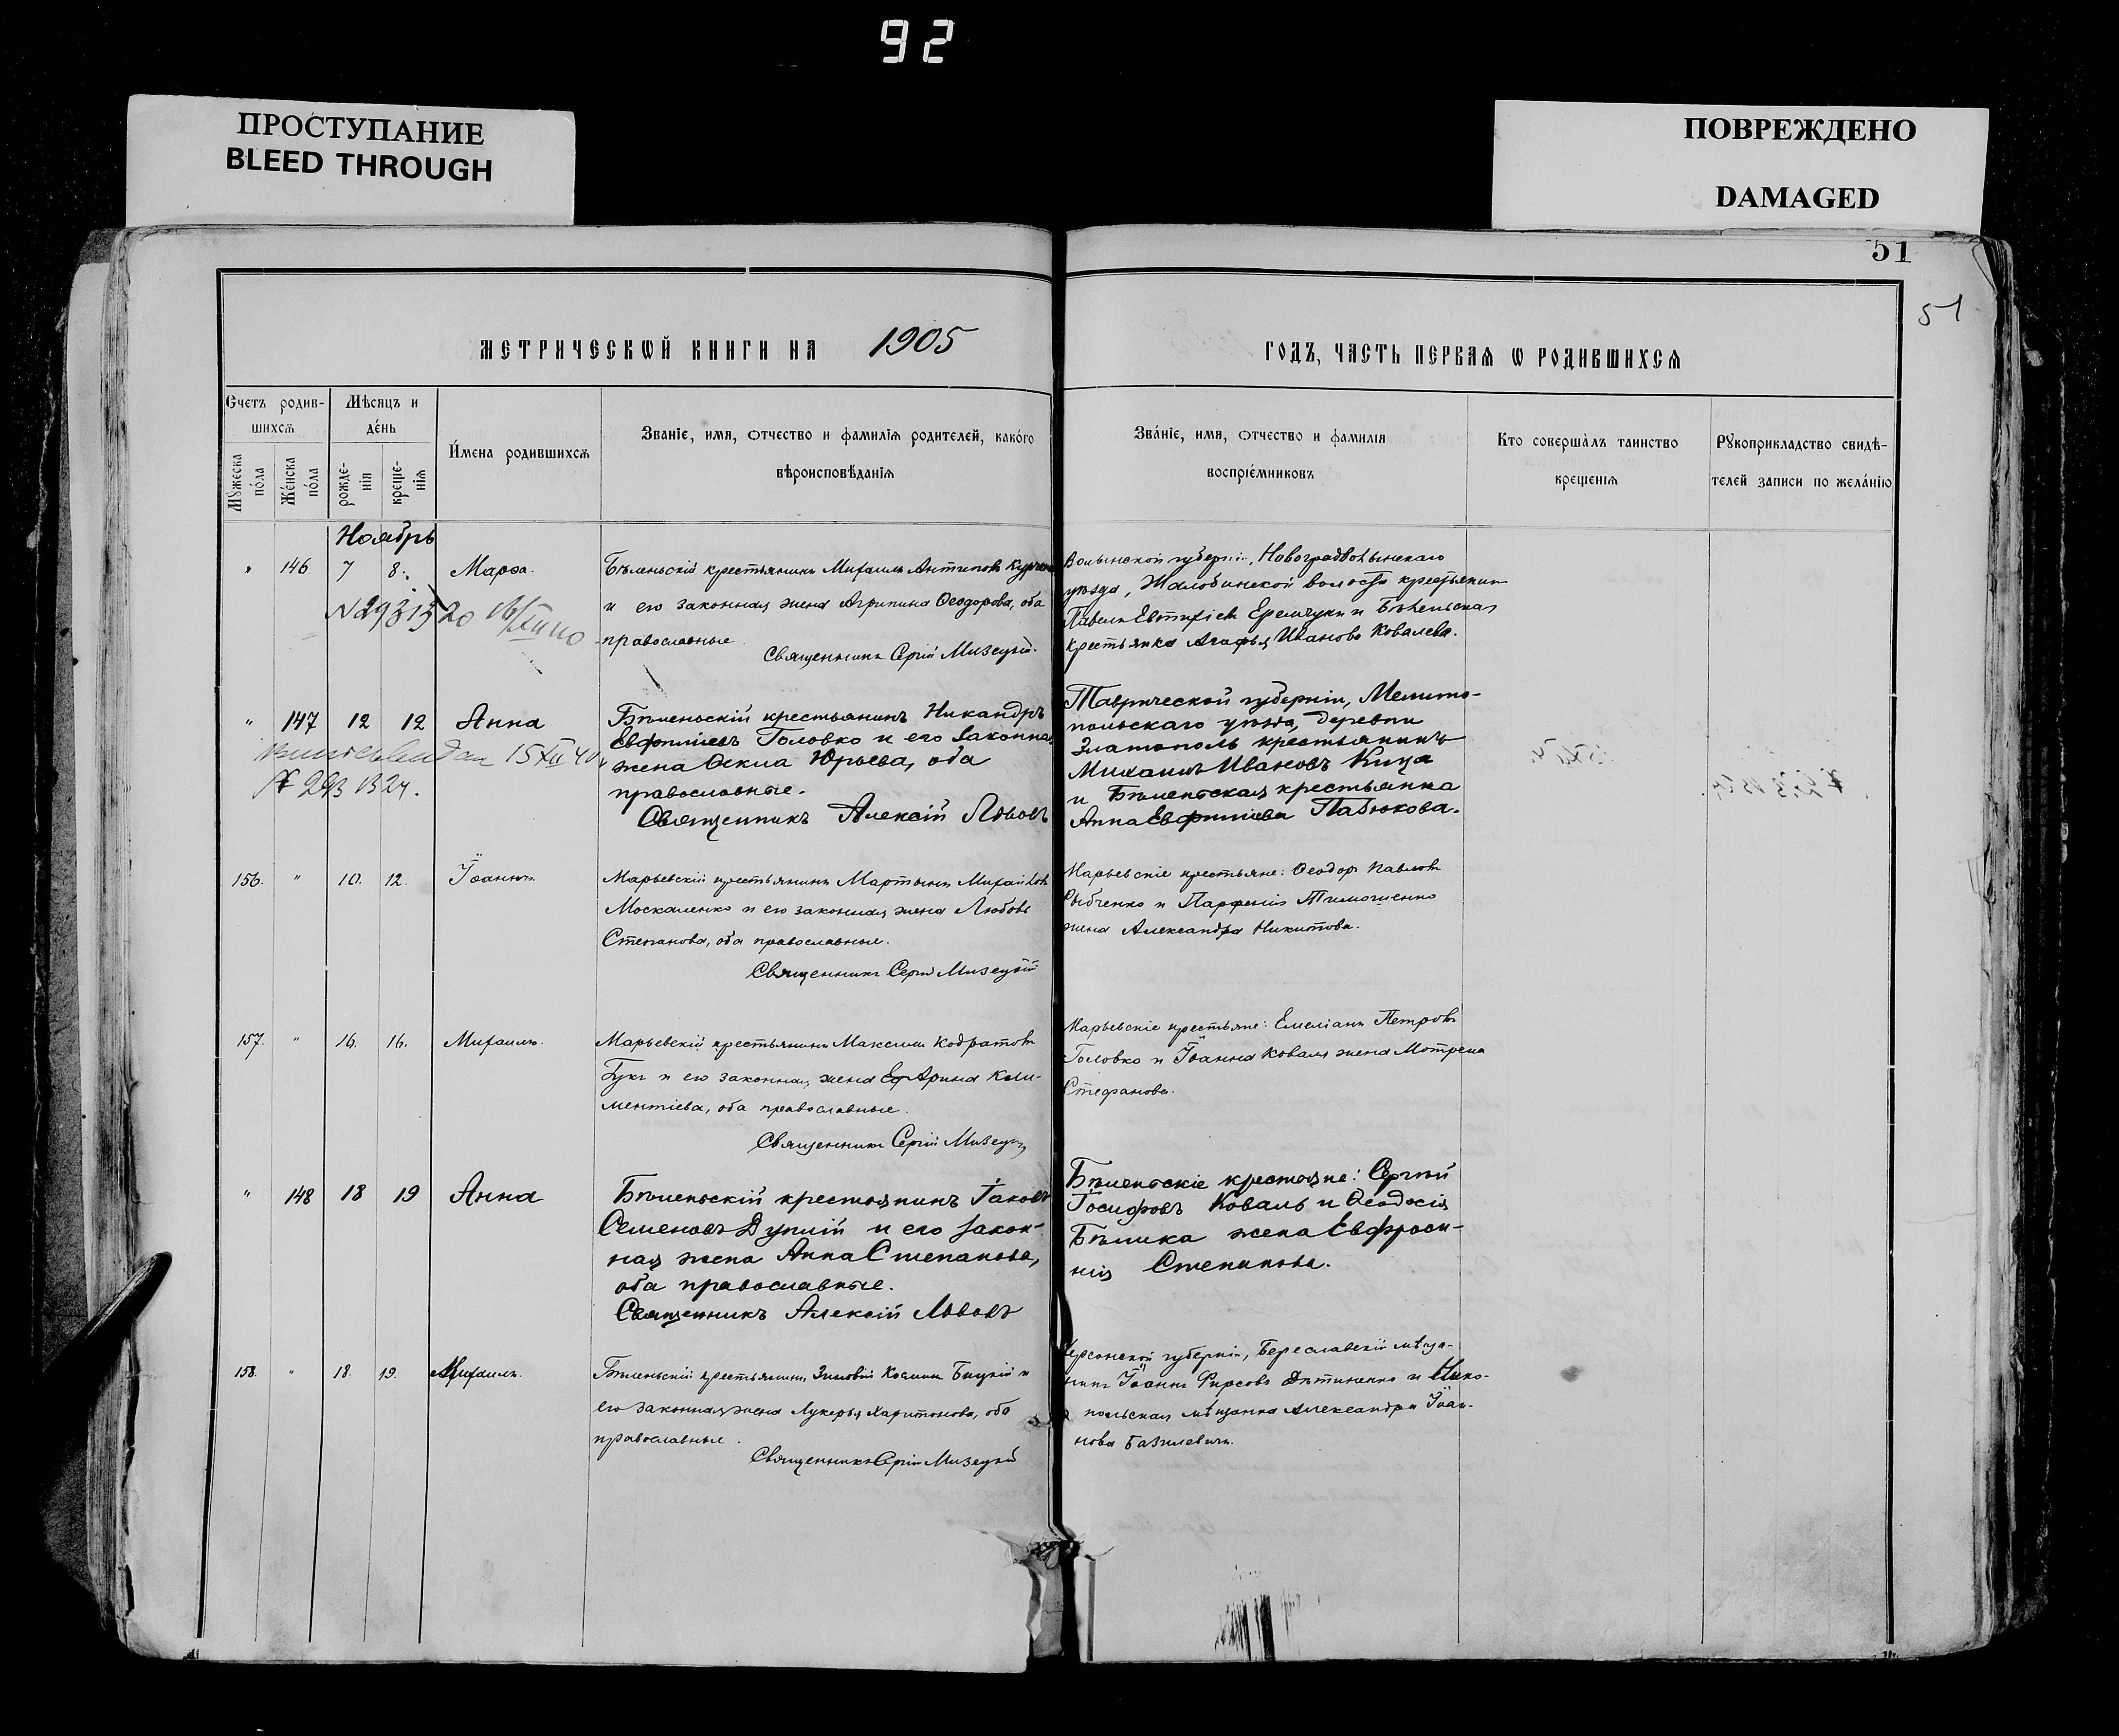 92
ПРОСТУПАНИЕ
BLEED THROUGH
ПОВРЕЖДЕНО
DAMAGED
51
51
МЕТРИЧЕСКѠЙ КНИГИ НА 1905
ГОДЪ, ЧАСТЬ ПЕРВАЯ Ѡ РОДИВШИХСЯ
Счетъ родив-
шихся
Мꙋжеска пола
Женска пола
Мѣсяцъ и
день
рожде-
нія
креще-
нія
Имена родившихся
Званіе, имя, ѻтчество и фамилія родителей, какого
вѣроисповѣданія
Званіе, имя, ѻтчество и фамилія
воспріемниковъ
Кто совершалъ таинство
крещенія
Рꙋкоприкладство свидѣ-
телей записи по желанію
Ноябрь
" 146 7 8. Марѳа.
Бѣленьскій крестьянинъ Михаилъ Антиповъ
и его законная жена Агрипина Ѳеодорова, оба
православные
Священникъ Сергій Мизецкій.
Волынской губерніи, Новоградволынскаго
уѣзда, Жалобинской волости крестьянин
Павелъ Евтихіевъ Еремчукъ и Бѣленьская
крестьянка Агафья Иванова Ковалева.
" 147 12 12 Анна
15 XII 40
№ 293 1324.
Бѣленьскій крестьянинъ Никандръ
Евфиміевъ Головко и его законная
жена Ѳекла Юрьева, оба
православные.
Священникъ Алексій Львовъ
Таврической губерніи, Мелито-
польскаго уѣзда, деревни
Златополь крестьянинъ
Михаилъ Ивановъ Куца
и Бѣленьская крестьянка
Анна Евфиміева Пабюкова.
156. " 10. 12. Іоаннъ.
Марьевскій крестьянинъ Мартынъ Михайловъ
Москаленко и его законная жена Любовь
Степанова, оба православные.
Священникъ Сергій Мизецкій
Марьевскіе крестьяне: Ѳеодоръ Павловъ
Рыбченко и Парфенія Тимошенко
жена Александра Никитова.
157. " 16. 16. Михаилъ.
Марьевскій крестьянинъ Максимъ Кодратовъ
Букъ и его законная жена Екатерина Кли-
ментіева, оба православные.
Священникъ Сергій Мизецкій
Марьевскіе крестьяне: Емеліанъ Петровъ
Головко и Іоанна Коваля жена Мотрена
Стефанова.
" 148 18 19 Анна
Бѣленьскій крестьянинъ Іаковъ
Семеновъ Дуплій и его закон-
ная жена Анна Степанова,
оба православные.
Священникъ Алексій Львовъ
Бѣленьскіе крестьяне: Сергій
Іосифовъ Коваль и Ѳеодосія
Бѣлика жена Евфроси-
нія Степанова.
158. " 18. 19. Михаилъ.
Бѣленьскій крестьянинъ Зиновій Косминъ Бицкій и
его законная жена Лукерья Харитонова, оба
православные.
Священникъ Сергій Мизецкій
Херсонской губерніи, Бериславскій мѣща-
нинъ Іоаннъ Фирсовъ Дѣтиненко и Нико-
польская мѣщанка Александра Іоан-
нова Базилевичъ.